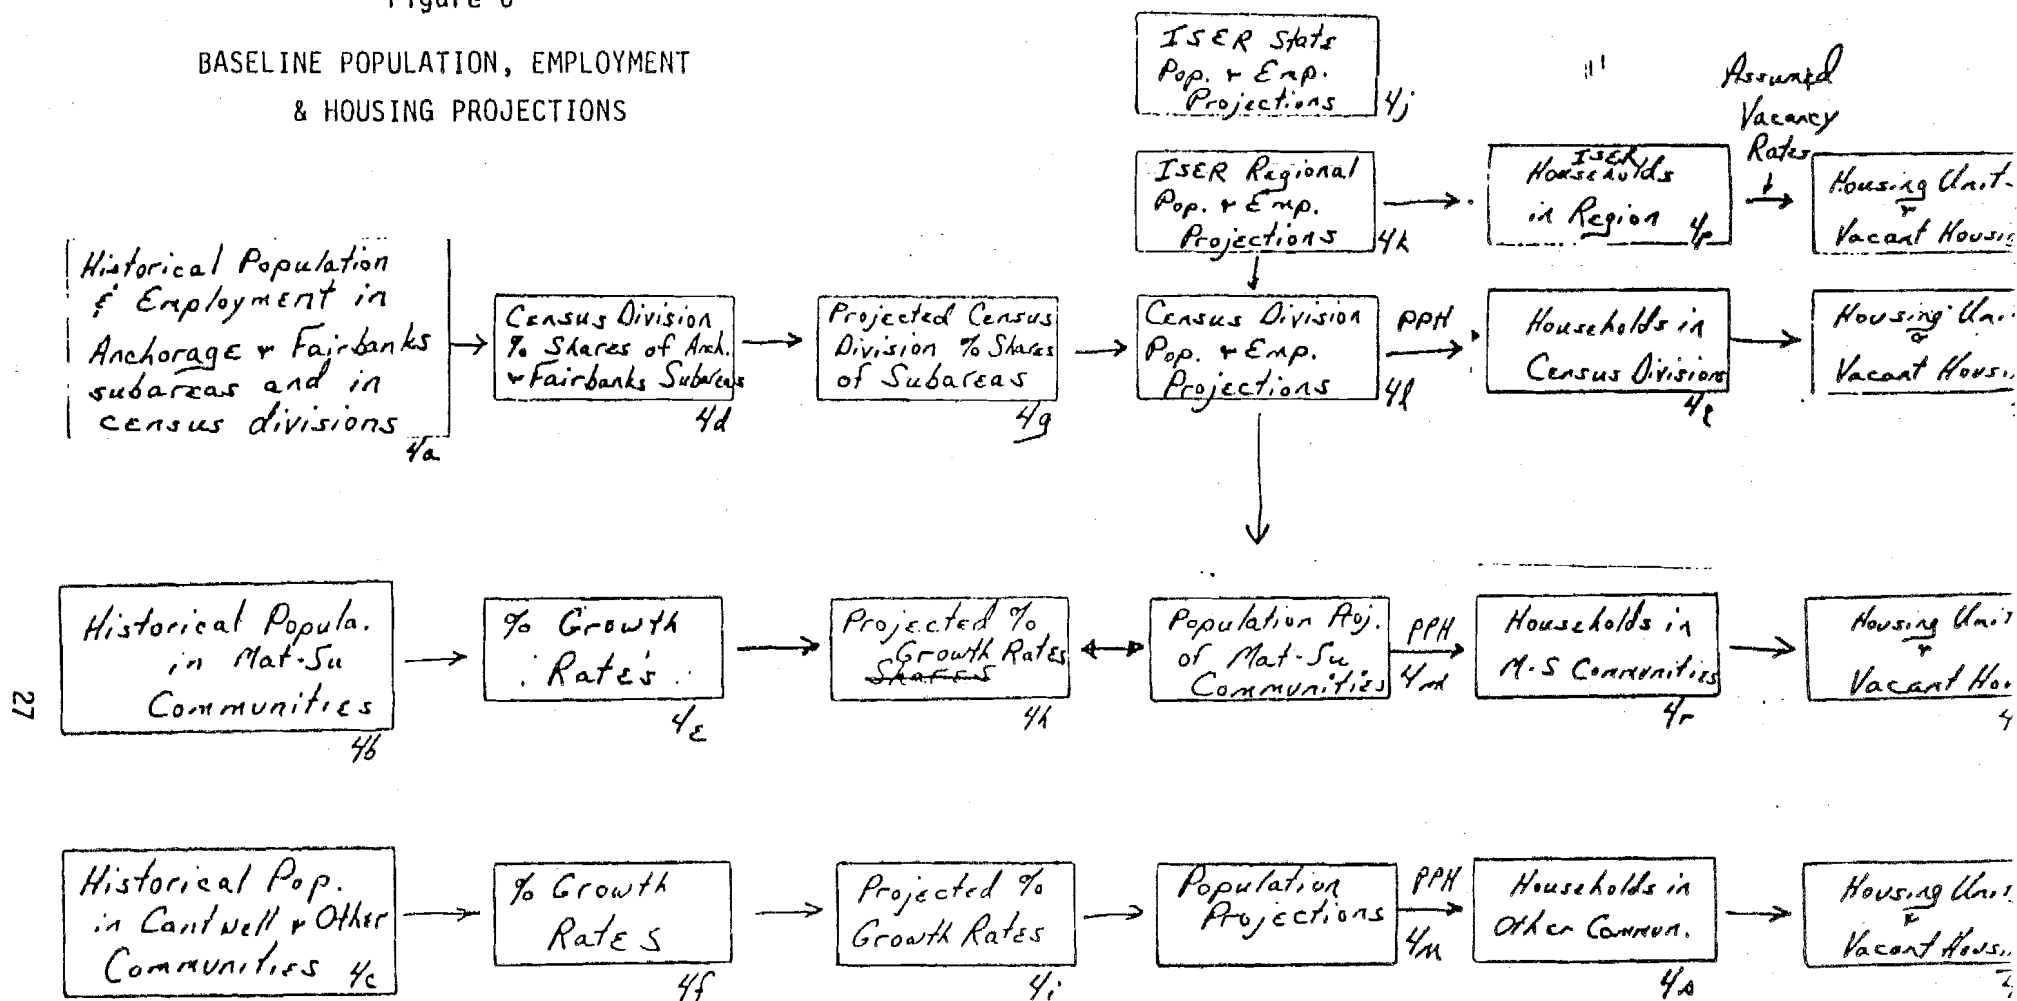 Figure 6
BASELINE POPULATION, EMPLOYMENT
& HOUSING PROJECTIONS
ISER State
Pop. & Emp.
Projections
4j
Assumed
Vacancy
Rates
ISER Regional
Pop. & Emp.
Projections
4k
ISER
Households
in Region
4p
Housing Unit
&
Vacant Housin
Historical Population
& Employment in
Anchorage & Fairbanks
subareas and in
census divisions
4a
Census Division
% Shares of Anch.
& Fairbanks Subareas
4d
Projected Census
Division % Shares
of Subareas
4g
Census Division
Pop. & Emp.
Projections
4l
PPH
Households in
Census Divisions
4q
Housing Uni
&
Vacant Hous
Historical Popula.
in Mat-Su
Communities
4b
% Growth
Rates
4e
Projected %
Growth Rates
Shares
4h
Population Proj.
of Mat-Su
Communities
PPH
4m
Households in
M-S Communities
4r
Housing Unit
&
Vacant Hou
4
Historical Pop.
in Cantwell & Other
Communities
4c
% Growth
Rates
4f
Projected %
Growth Rates
4i
Population
Projections
PPH
4n
Households in
Other Commun.
4s
Housing Unit
&
Vacant Hous
27